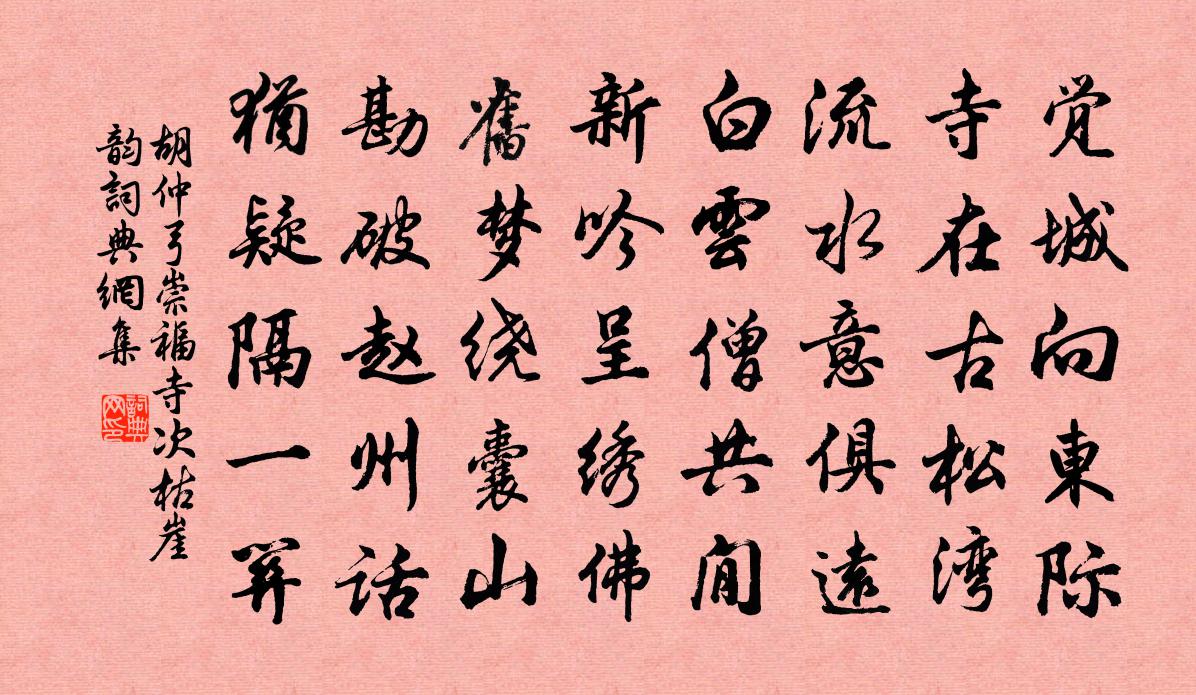 觉城向東际
寺在古松湾
流水意俱遠
白雲僧共閒
新吟呈绣佛
舊梦绕囊山
勘破赵州话
猶疑隔一關
胡仲弓崇福寺次枯崖
韵詞典網集
詞典网印